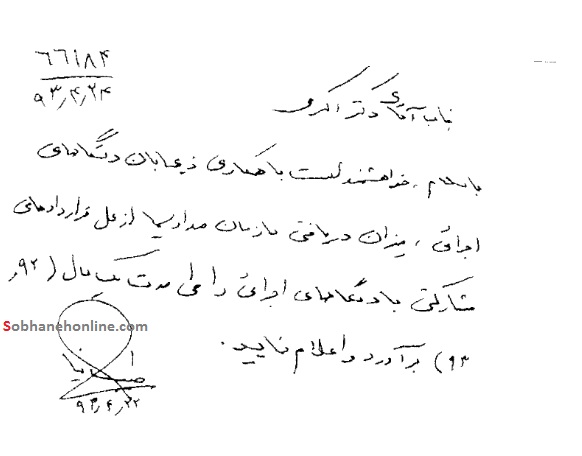 ۶۶۱۸۴
۹۳٫۴٫۲۴
جناب آقای دکتر اکرمی
با سلام، خواهشمند است با همکاری ذیحسابان دستگاههای
اجرائی، میزان دریافتی سازمان صدا و سیما از محل قراردادهای
مشارکتی با دستگاههای اجرائی را طی مدت یک سال (۹۲٫
۹۳) برآورد و اعلام نمایید.
Sobhanehonline.com
۹۳٫۴٫۲۲